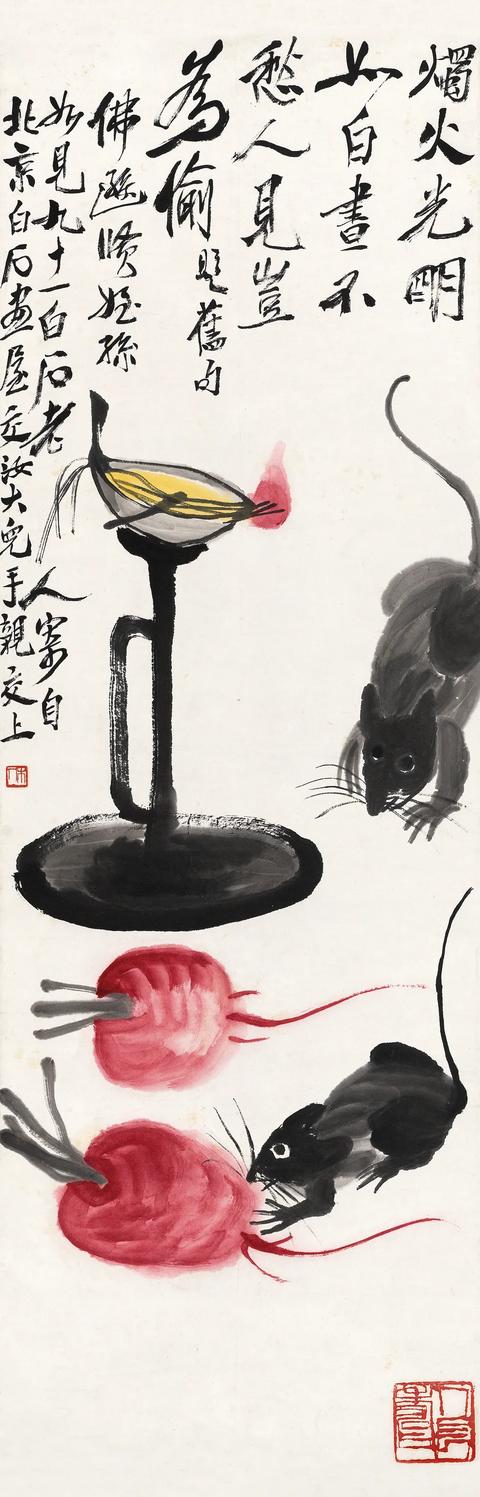 燭火光明
如白晝不
愁人見豈
為偷題舊句
佛賢姪孫
如見九十一白石老人寄自
北京白石畫屋交汝大兒手親交上